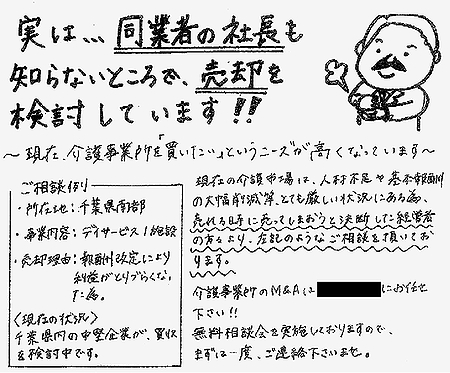 実は、、、同業者の社長も
知らないところで、売却を
検討しています!!
〜現在、介護事業所を「買いたい」というニーズが高くなっています〜
ご相談例
・所在地：千葉県南部
・事業内容：デイサービス1施設
・売却理由：報酬改定により
利益がとりづらくなっ
た為。
〈現在の状況〉
千葉県内の中堅企業が、買収
を検討中です。
現在の介護市場は、人材不足や基本報酬
の大幅削減等、とても厳しい状況にある為、
売れる時に売ってしまおうと決断した経営者
の方々より、左記のようなご相談を頂いてお
ります。
介護事業所のM&Aは にお任せ
下さい!!
無料相談会を実施しておりますので、
まずは一度、ご連絡下さいませ。